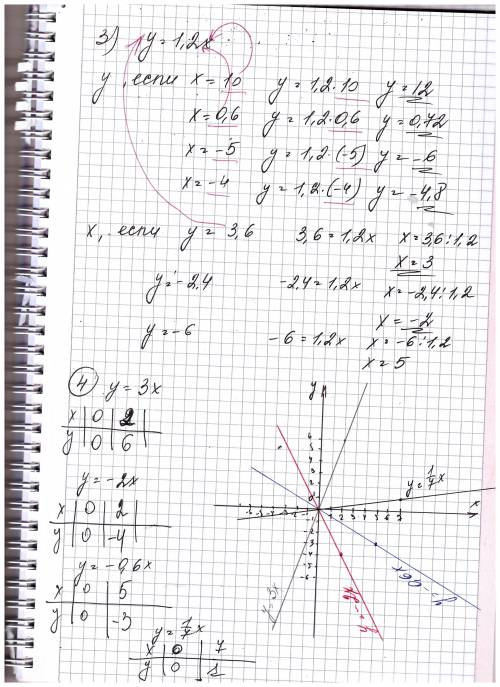 3) y = 1,2x
y, если x = 10 y = 1,2·10 y = 12
x = 0,6 y = 1,2·0,6 y = 0,72
x = -5 y = 1,2·(-5) y = -6
x = -4 y = 1,2·(-4) y = -4,8
x, если y = 3,6 3,6 = 1,2x x = 3,6:1,2
x = 3
y = -2,4 -2,4 = 1,2x x = -2,4:1,2
x = -2
y = -6 -6 = 1,2x x = -6:1,2
x = 5
4 y = 3x
x 0 2
y 0 6
y = -2x
x 0 2
y 0 -4
y = -0,6x
x 0 5
y 0 -3
y = 1/7 x
x 0 7
y 0 1
y
x
y = 1/7 x
y = 3x
y = -2x
y = -0,6x